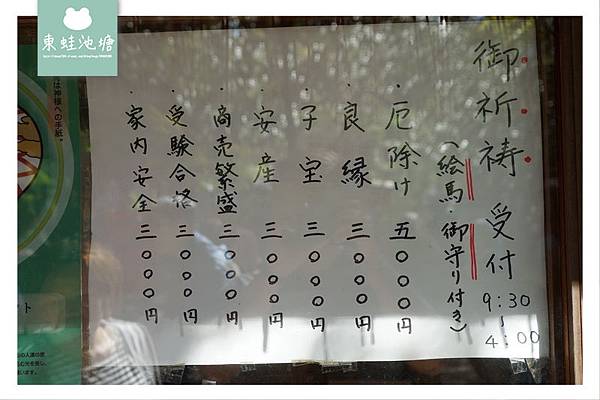 御祈祷受付 9:30~4:00
(絵馬・御守り付き)
・厄除け 五〇〇〇円
・良縁 三〇〇〇円
・子宝 三〇〇〇円
・安産 三〇〇〇円
・商売繁盛 三〇〇〇円
・受験合格 三〇〇〇円
・家内安全 三〇〇〇円
は神様への手紙。
東蛙池塘